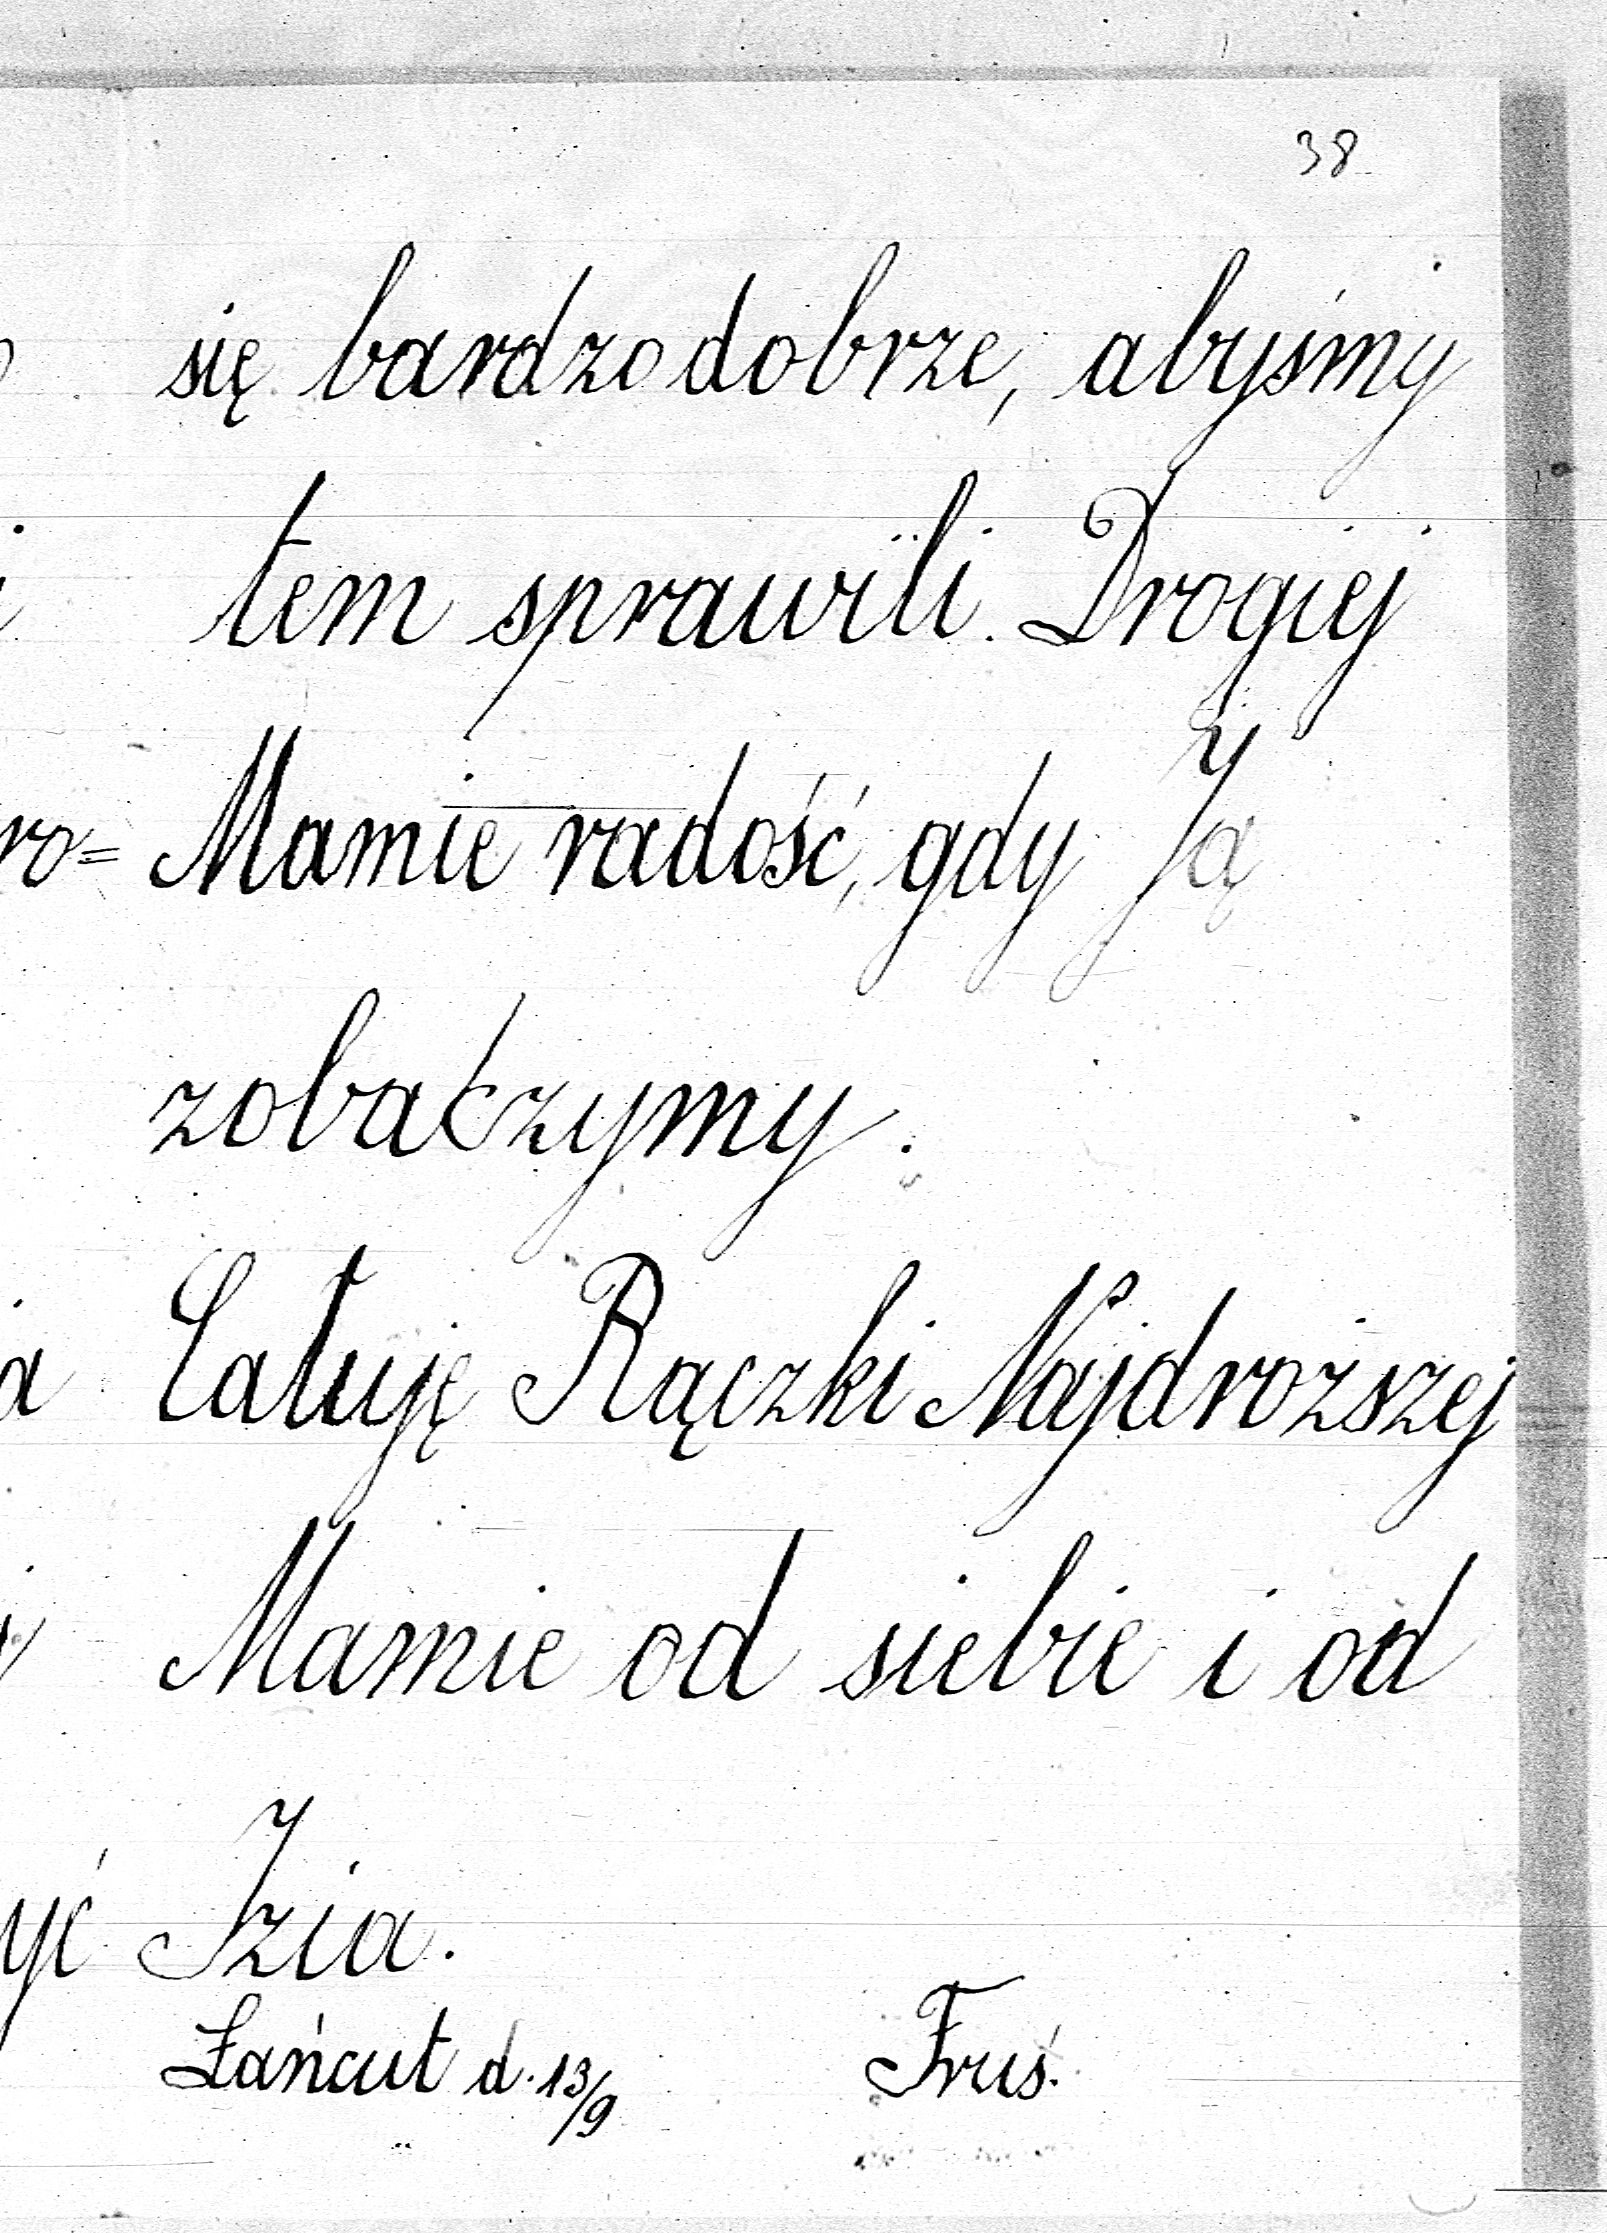 38
się bardzo dobrze, abyśmy
tem sprawili Drogiej
ro= Mamie radość, gdy Ją
zobaczymy.
a Całuję Rączki Najdroższej
Mamie od siebie i od
yć Izia.
Łańcut d. 13/9 Fruś.